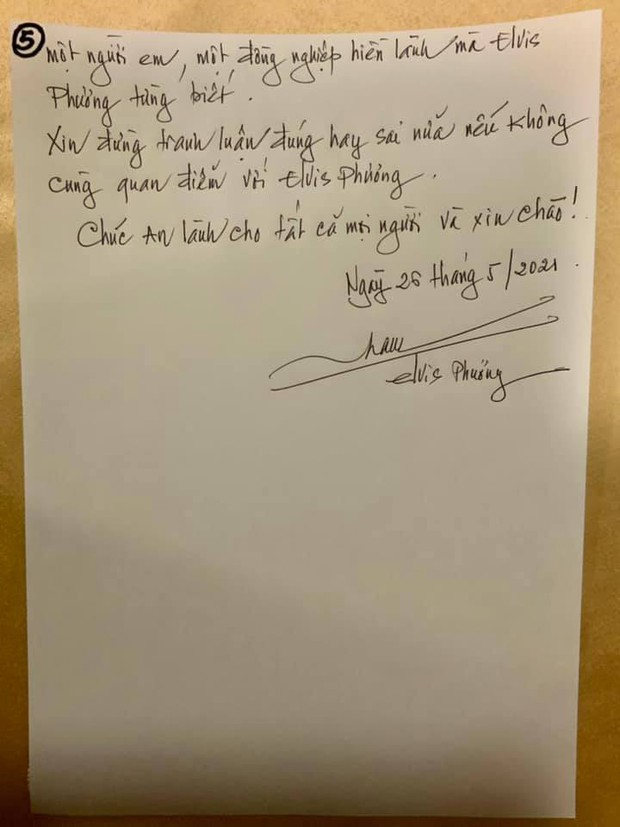 5
một người em, một đồng nghiệp hiền lành mà Elvis
Phương từng biết.
Xin đừng tranh luận đúng hay sai nữa nếu không
cùng quan điểm với Elvis Phương.
Chúc An lành cho tất cả mọi người và xin chào!
Ngày 26 tháng 5/2021.
Elvis Phương